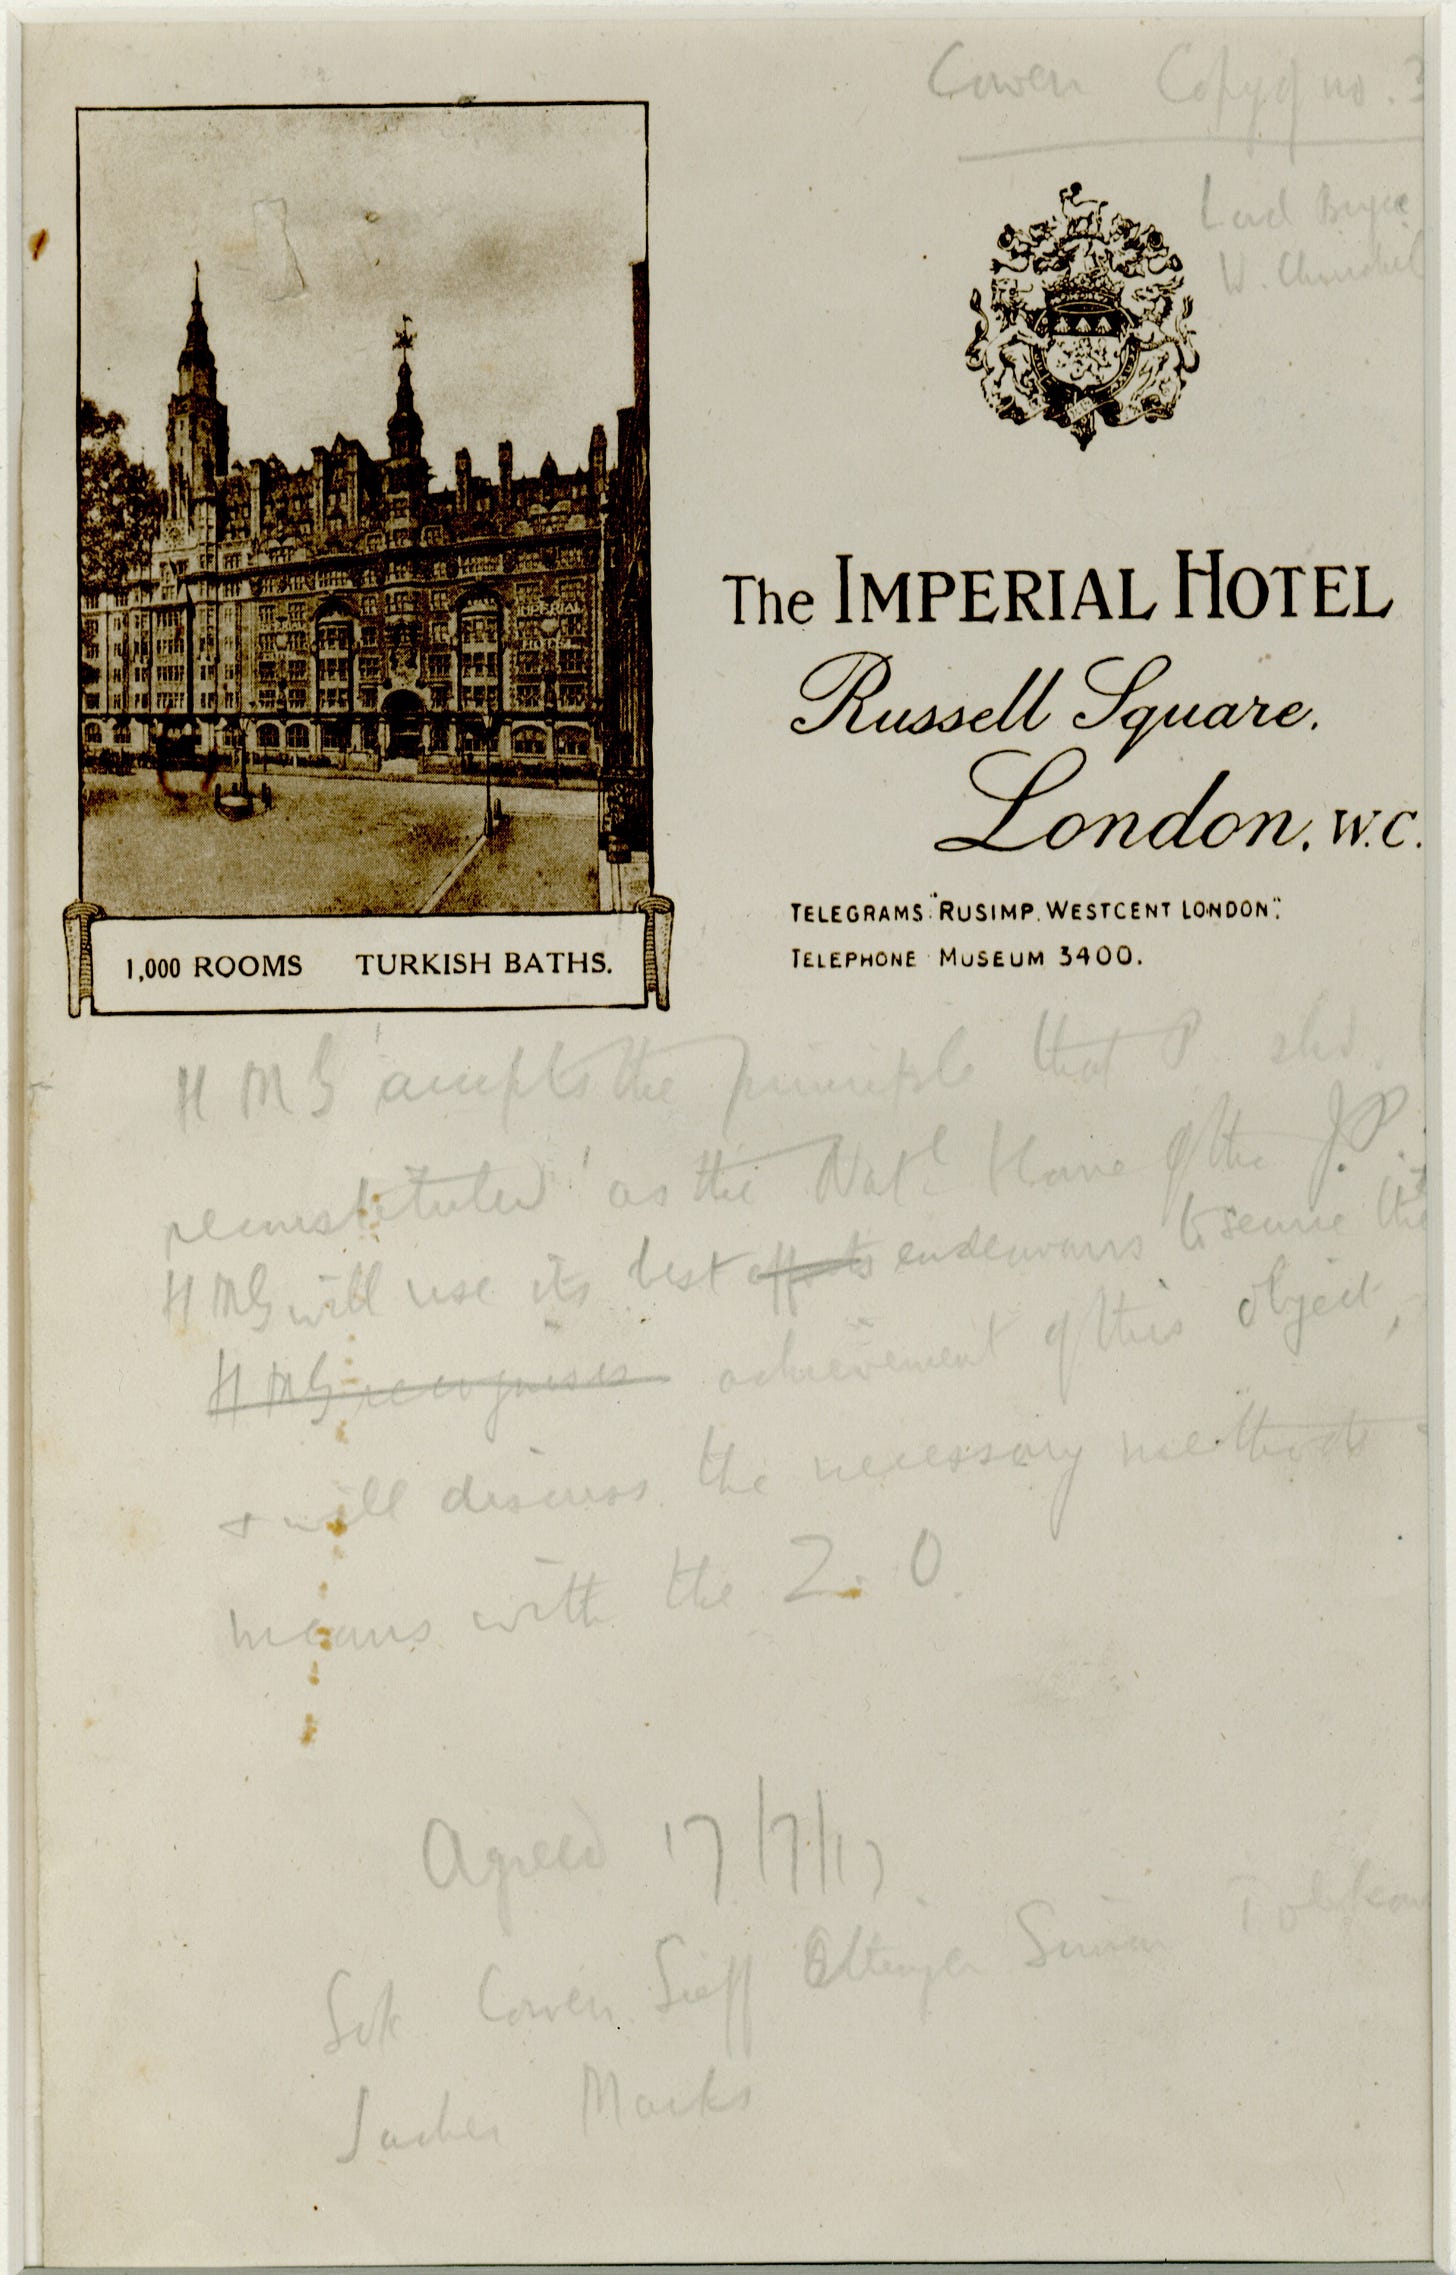 Cowen Copy of no. 3
Lord Bryce
W. Churchill
IMPERIAL
HOTEL
The IMPERIAL HOTEL
Russell Square,
London. W.C.
TELEGRAMS: "RUSIMP. WESTCENT LONDON".
TELEPHONE MUSEUM 3400.
1,000 ROOMS TURKISH BATHS.
H M G accepts the principle that P. shd.
reconstituted as the Natl. Home of the J.P.
H M G will use its best efforts endeavours to secure the
H M G recognises achievement of this object,
& will discuss the necessary methods
means with the Z. O.
Agreed 17/7/17
Sok Cowen Sieff Ettinger Simon Tolkowsky
Sacher Marks